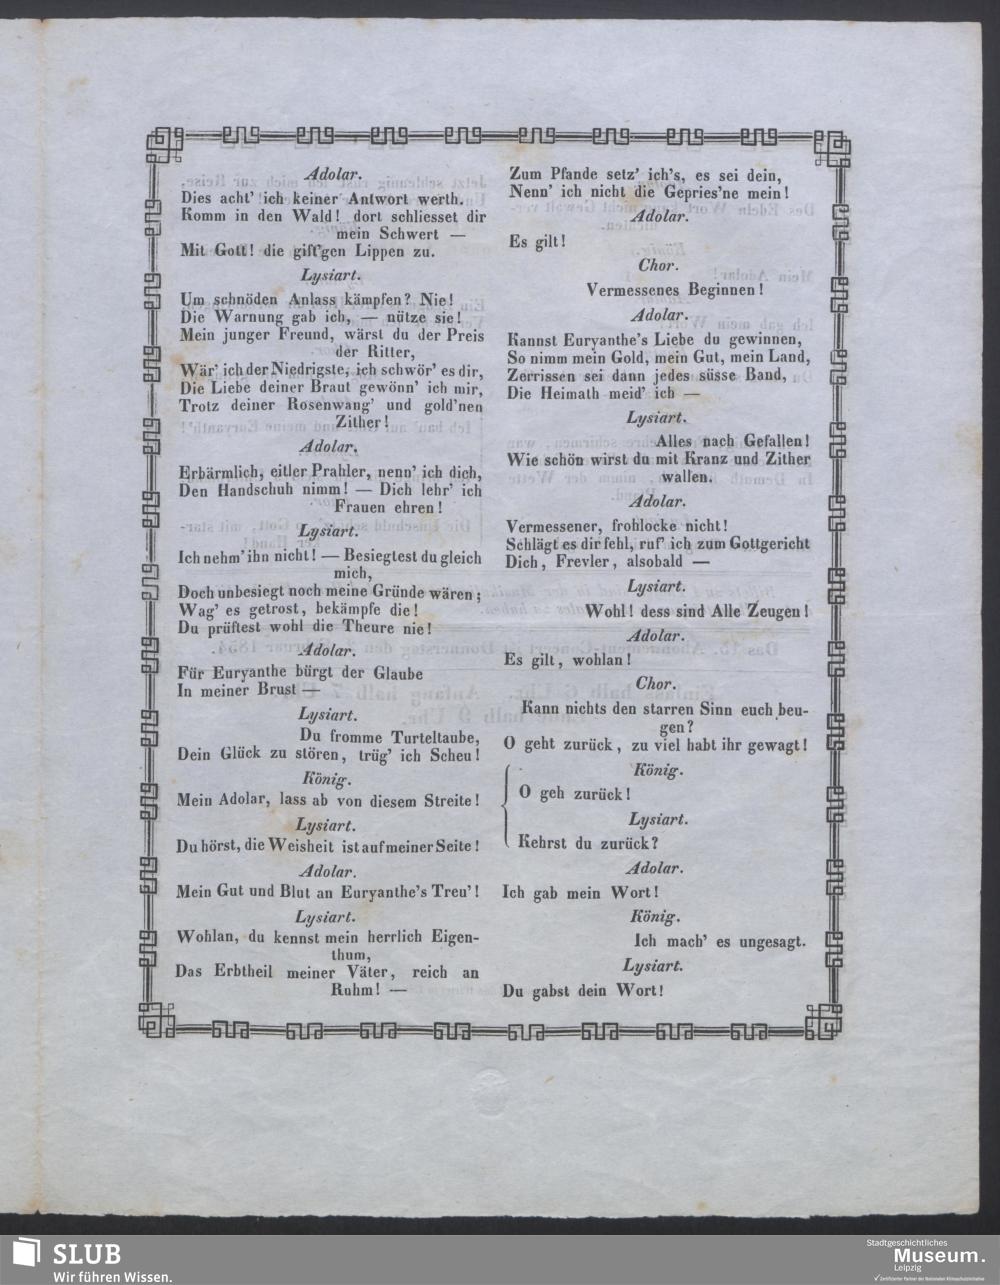 Adolar.
Dies acht' ich keiner Antwort werth.
Komm in den Wald! dort schliesset dir
mein Schwert —
Mit Gott! die gift'gen Lippen zu.
Lysiart.
Um schnöden Anlass kämpfen? Nie!
Die Warnung gab ich, — nütze sie!
Mein junger Freund, wärst du der Preis
der Ritter,
Wär' ich der Niedrigste, ich schwör' es dir,
Die Liebe deiner Braut gewönn' ich mir,
Trotz deiner Rosenwang' und gold'nen
Zither!
Adolar.
Erbärmlich, eitler Prahler, nenn' ich dich,
Den Handschuh nimm! — Dich lehr' ich
Frauen ehren!
Lysiart.
Ich nehm' ihn nicht! — Besiegtest du gleich
mich,
Doch unbesiegt noch meine Gründe wären;
Wag' es getrost, bekämpfe die!
Du prüftest wohl die Theure nie!
Adolar.
Für Euryanthe bürgt der Glaube
In meiner Brust —
Lysiart.
Du fromme Turteltaube,
Dein Glück zu stören, trüg' ich Scheu!
König.
Mein Adolar, lass ab von diesem Streite!
Lysiart.
Du hörst, die Weisheit ist auf meiner Seite!
Adolar.
Mein Gut und Blut an Euryanthe's Treu'!
Lysiart.
Wohlan, du kennst mein herrlich Eigen-
thum,
Das Erbtheil meiner Väter, reich an
Ruhm! —
Zum Pfande setz' ich's, es sei dein,
Nenn' ich nicht die Gepries'ne mein!
Adolar.
Es gilt!
Chor.
Vermessenes Beginnen!
Adolar.
Kannst Euryanthe's Liebe du gewinnen,
So nimm mein Gold, mein Gut, mein Land,
Zerrissen sei dann jedes süsse Band,
Die Heimath meid' ich —
Lysiart.
Alles nach Gefallen!
Wie schön wirst du mit Kranz und Zither
wallen.
Adolar.
Vermessener, frohlocke nicht!
Schlägt es dir fehl, ruf' ich zum Gottgericht
Dich, Frevler, alsobald —
Lysiart.
Wohl! dess sind Alle Zeugen!
Adolar.
Es gilt, wohlan!
Chor.
Kann nichts den starren Sinn euch beu-
gen?
O geht zurück, zu viel habt ihr gewagt!
König.
O geh zurück!
Lysiart.
Kehrst du zurück?
Adolar.
Ich gab mein Wort!
König.
Ich mach' es ungesagt.
Lysiart.
Du gabst dein Wort!
SLUB
Wir führen Wissen.
Stadtgeschichtliches
Museum.
Leipzig